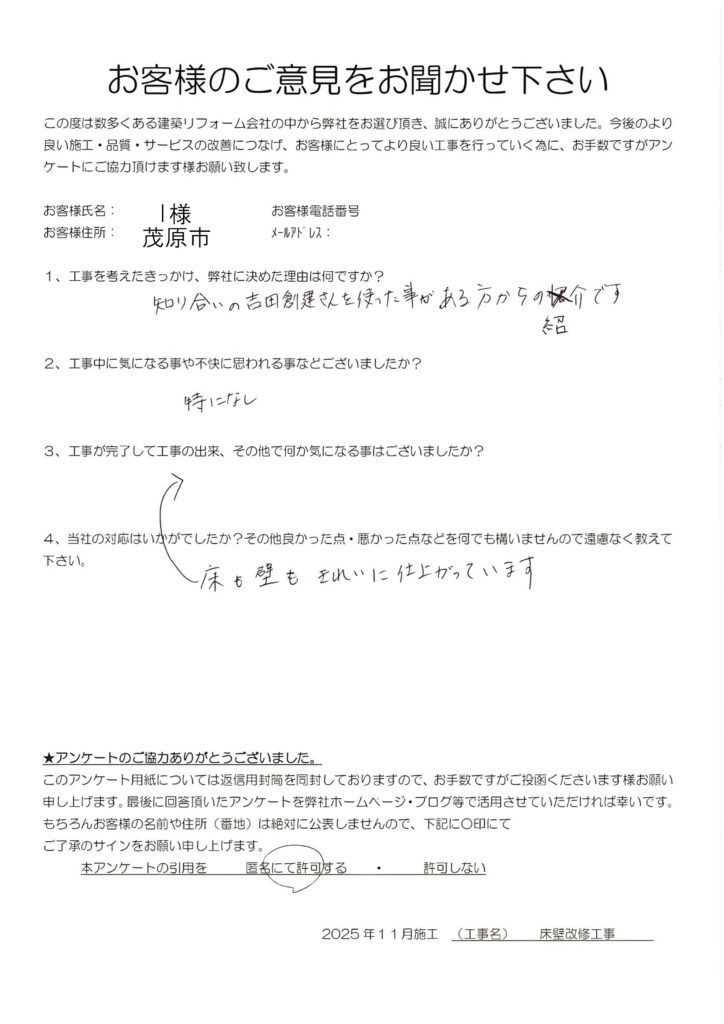 お客様のご意見をお聞かせ下さい
この度は数多くある建築リフォーム会社の中から弊社をお選び頂き、誠にありがとうございました。今後のより
良い施工・品質・サービスの改善につなげ、お客様にとってより良い工事を行っていく為に、お手数ですがアン
ケートにご協力頂けます様お願い致します。
お客様氏名： I様 お客様電話番号
お客様住所： 茂原市 ﾒｰﾙｱﾄﾞﾚｽ：
１、工事を考えたきっかけ、弊社に決めた理由は何ですか？
知り合いの吉田創建さんを使った事がある方からの介です
紹
２、工事中に気になる事や不快に思われる事などございましたか？
特になし
３、工事が完了して工事の出来、その他で何か気になる事はございましたか？
４、当社の対応はいかがでしたか？その他良かった点・悪かった点などを何でも構いませんので遠慮なく教えて
下さい。
床も壁もきれいに仕上がっています
★アンケートのご協力ありがとうございました。
このアンケート用紙については返信用封筒を同封しておりますので、お手数ですがご投函くださいます様お願い
申し上げます。最後に回答頂いたアンケートを弊社ホームページ・ブログ等で活用させていただければ幸いです。
もちろんお客様の名前や住所（番地）は絶対に公表しませんので、下記に〇印にて
ご了承のサインをお願い申し上げます。
本アンケートの引用を 匿名にて許可する ・ 許可しない
2025年１１月施工 （工事名） 床壁改修工事